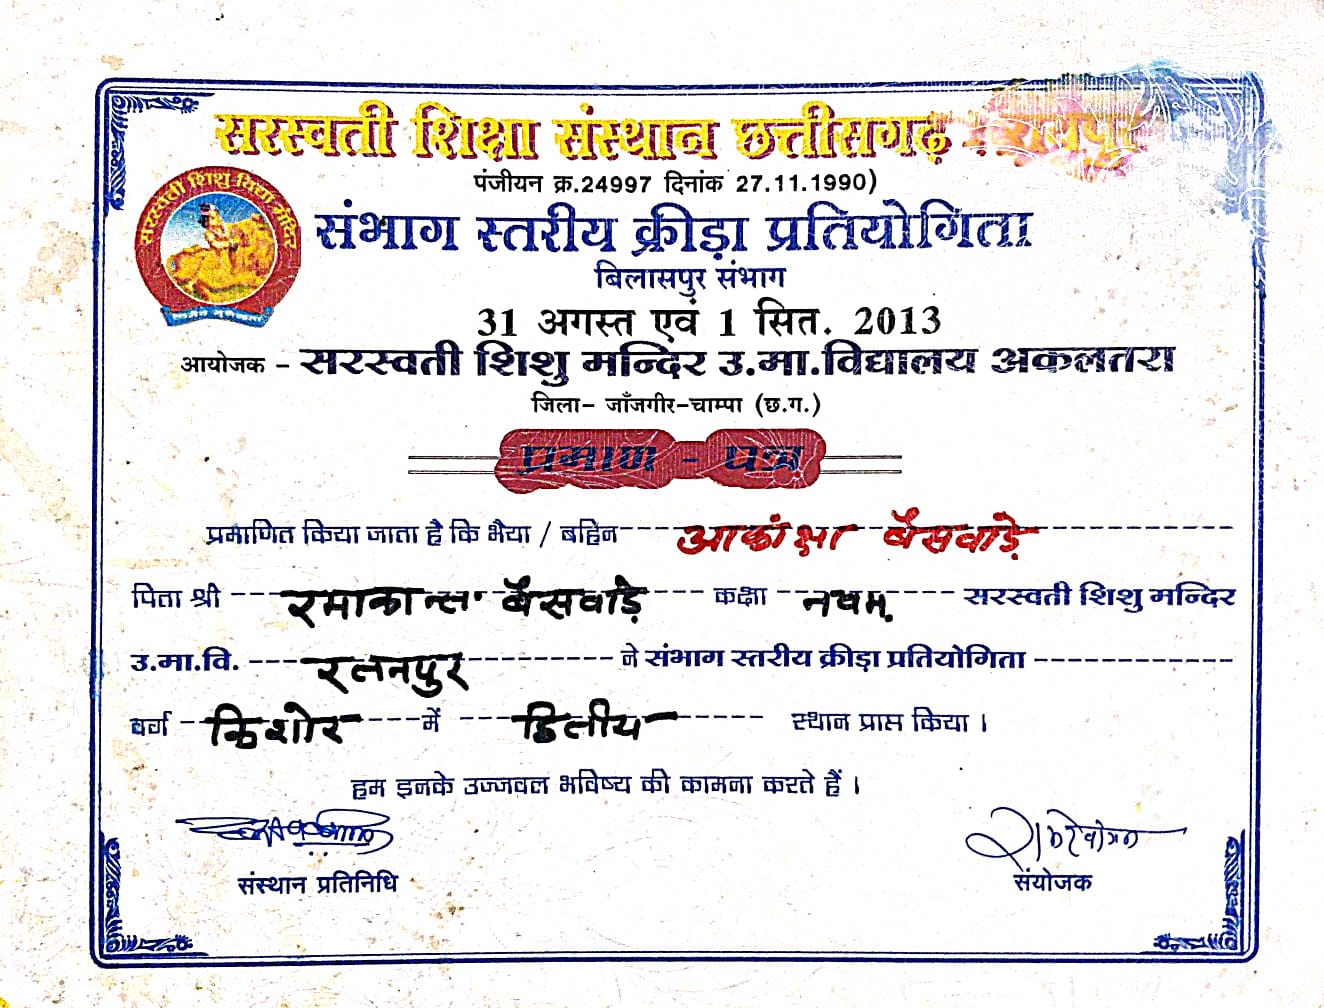 सरस्वती शिक्षा संस्थान छत्तीसगढ़ रायपुर
पंजीयन क्र.24997 दिनांक 27.11.1990)
सरस्वती शिशु विद्या मंदिर
संभाग स्तरीय क्रीड़ा प्रतियोगिता
बिलासपुर संभाग
31 अगस्त एवं 1 सित. 2013
आयोजक - सरस्वती शिशु मन्दिर उ.मा.विद्यालय अकलतरा
जिला- जाँजगीर-चाम्पा (छ.ग.)
प्रमाण - पत्र
प्रमाणित किया जाता है कि भैया / बहिन आकांक्षा बैसवाड़े
पिता श्री रमाकान्त बैसवाड़े कक्षा नवम् सरस्वती शिशु मन्दिर
उ.मा.वि. रतनपुर ने संभाग स्तरीय क्रीड़ा प्रतियोगिता
वर्ग किशोर में द्वितीय स्थान प्राप्त किया।
हम इनके उज्जवल भविष्य की कामना करते हैं।
संस्थान प्रतिनिधि
संयोजक